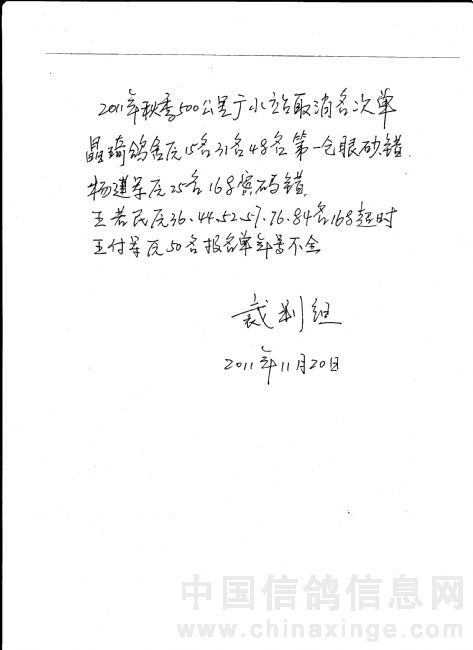 2011年秋季500公里于水站取消名次单
晶琦鸽舍原15名31名48名第一仓眼砂错.
杨建军原25名168密码错.
王若民原36.44.52.57.76.84名168超时
王付军原50名报名单号不全
裁判组
2011年11月20日
中国信鸽信息网
www.chinaxinge.com